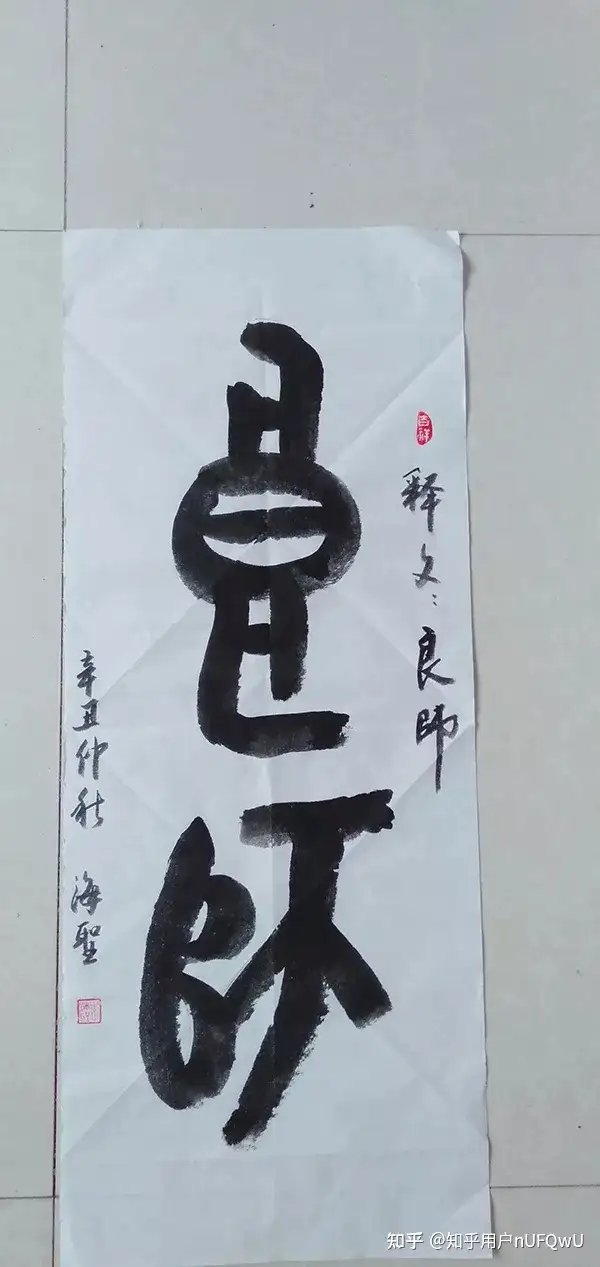 吉祥
释文：良師
良師
辛丑仲秋 海聖
知乎 @知乎用户nUFQwU